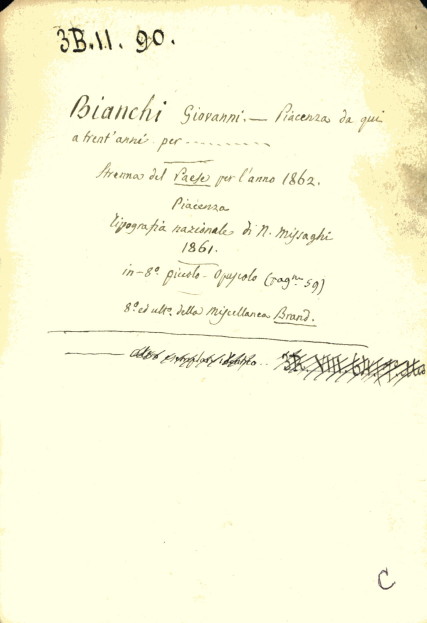 3B.11. 90.
Bianchi Giovanni. — Piacenza da qui
a trent'anni per ..........
Strenna del Paese per l'anno 1862.
Piacenza
Tipografia nazionale di N. Missaghi
1861.
in-8º piccolo - Opuscolo (pagne 59)
8º ed ultº. della Miscellanea Brand.
3B. VIII.
C